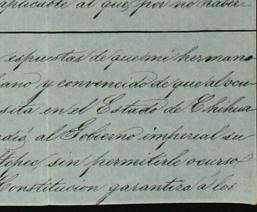 aplicable al que por no haber
espuestas de que mi hermano
iano y convencido de que al ocu
sita en el Estado de Chihua
edió al Gobierno imperial su
tepec, sin permitirle ocurso
Constitucion garantiza á los